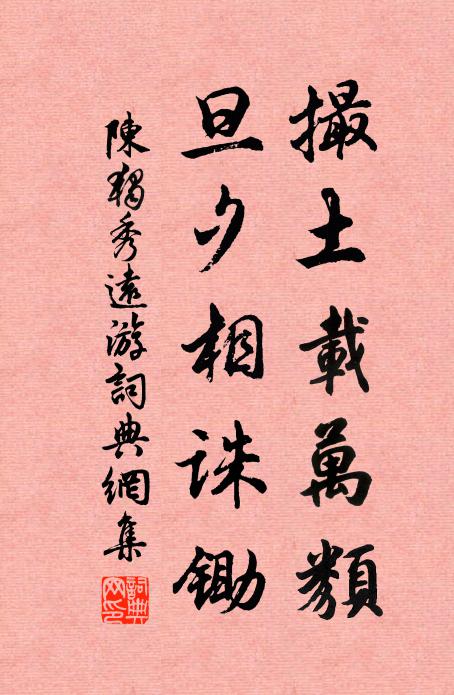 撮土載萬類
旦夕相誅鋤
陳獨秀遠游詞典網集
詞典网印